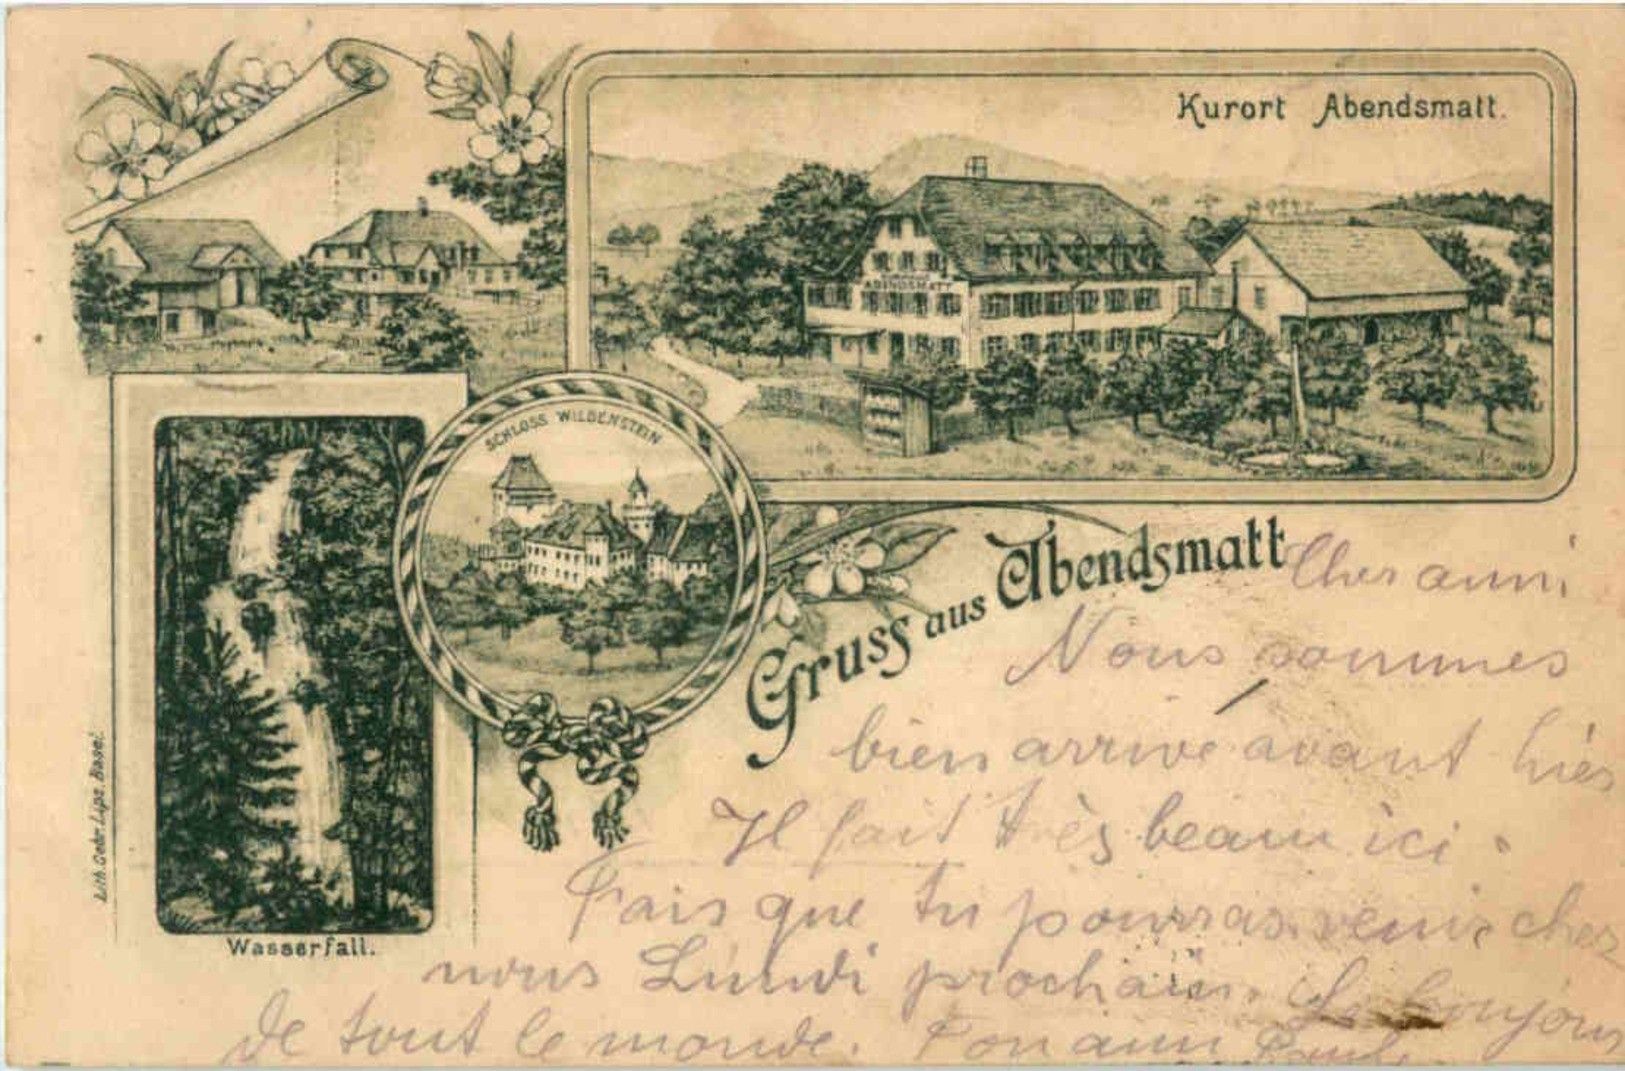 Kurort Abendsmatt.
ABENDSMATT
SCHLOSS WILDENSTEIN
Gruss aus Abendsmatt
Wasserfall.
Lith. Gebr. Lips. Basel.
Cher ami
Nous sommes
bien arrive avant hier
Il fait très beau ici.
Fais que tu pourras venir chez
nous Lundi prochain. Le bonjour
de tout le monde. Ton ami